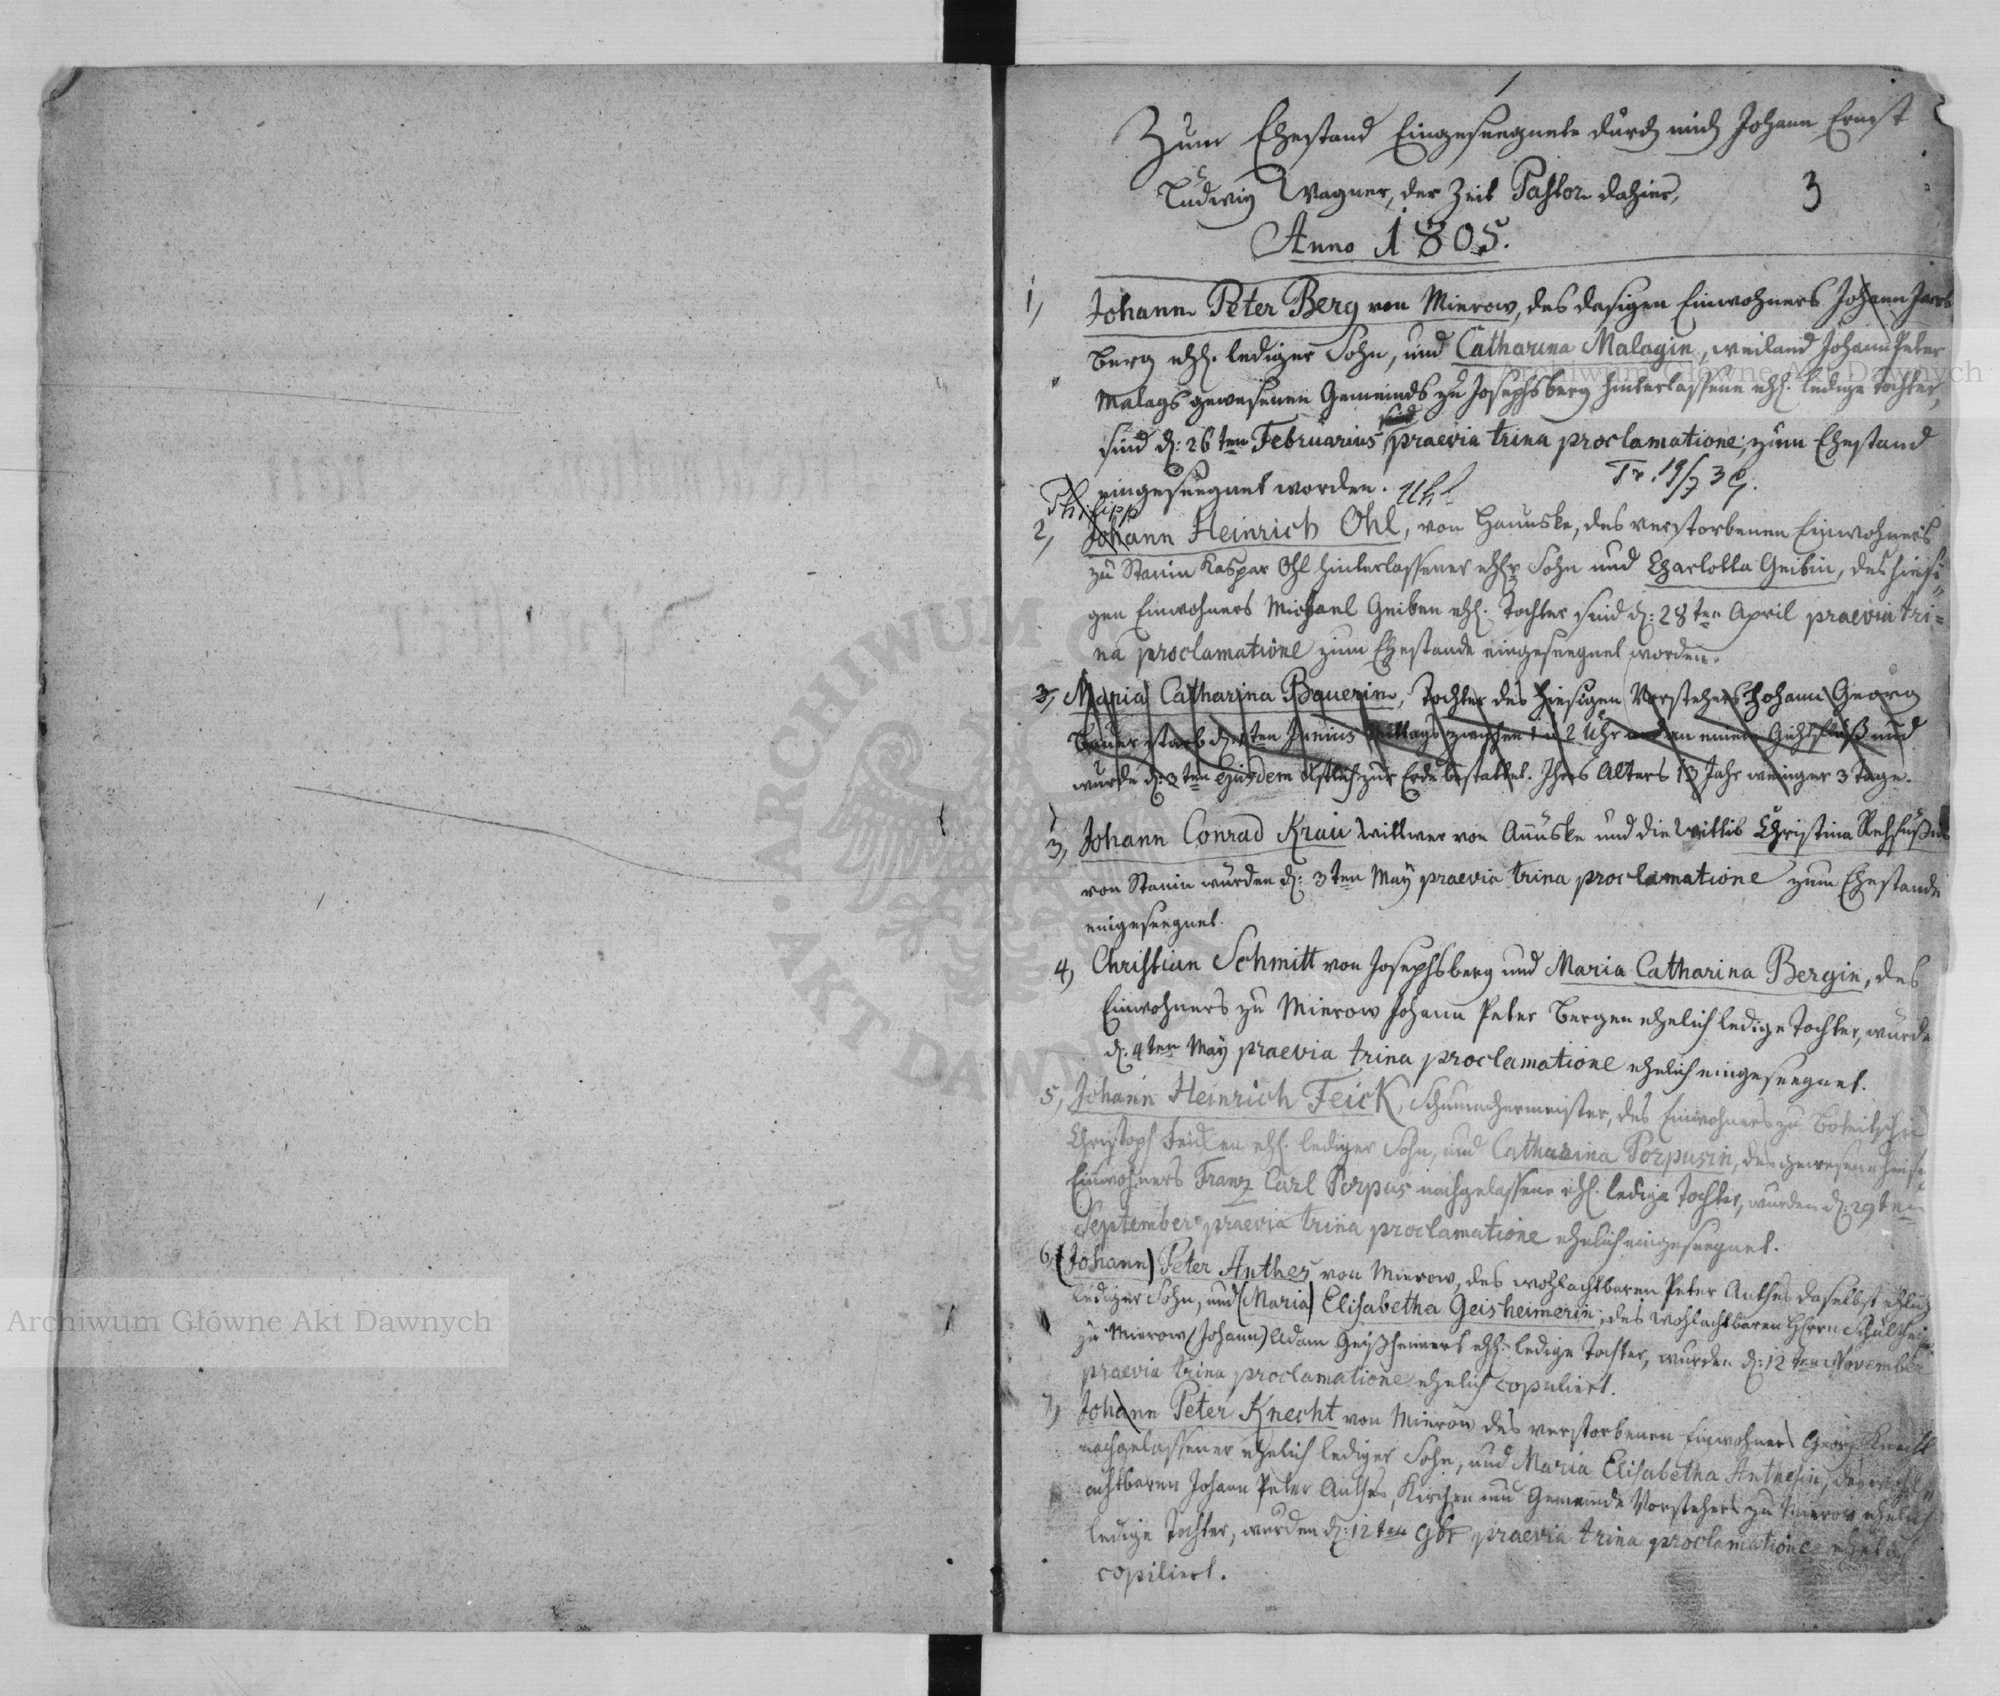 Zum Ehestand Eingeseegnete durch mich Johann Ernst
Ludwig Wagner, der Zeit Pastor dahier,
3
Anno 1805.
1, Johann Peter Berg von Mierow, des dasigen Einwohners Johann Jacob
Berg ehl. lediger Sohn, und Catharina Malagin, weiland Johann Peter
Malags gewesenen Gemeinds zu Josephsberg hinterlassene ehl. ledige Tochter,
sind d: 26ten Februarius praevia trina proclamatione, zum Ehestand
eingeseegnet worden.
Philipp
Uhl
2, Johann Heinrich Ohl, von Hanuske, des verstorbenen Einwohners
zu Stanin Kaspar Ohl hinterlassener Sohn und Charlotta Geibin, des hiesi-
gen Einwohners Michael Geiben ehl. Tochter sind d: 28ten April praevia tri=
na proclamatione zum Ehestande eingeseegnet worden.
3, Maria Catharina Bauerin, Tochter des hiesigen Vorstehers Johann Georg
Bauer starb d: 1ten Junius Mittags zwischen 1 u 2 Uhr an einem und
wurde d: 3ten ejusdem zur Erde bestattet. Ihres Alters 13 Jahr weniger 3 Tage.
3, Johann Conrad Krau Wittwer von Anuske und die Wittib Christina
von Stanin wurden d: 3ten May praevia trina proclamatione zum Ehestande
eingeseegnet.
4, Christian Schmitt von Josephsberg und Maria Catharina Bergin, des
Einwohners zu Mierow Johann Peter Bergen ehelich ledige Tochter, wurde
d: 4ten May praevia trina proclamatione ehelich eingeseegnet.
5, Johann Heinrich Feick, Schumachermeister, des Einwohners zu
Christoph ehl. lediger Sohn, und Catharina Porpusin, des gewesenen
Einwohners Franz Carl Porpus nachgelassene ehl. ledige Tochter, wurden d: 29ten
September praevia trina proclamatione ehelich eingeseegnet.
6, (Johann) Peter Anthes von Mierow, des wohlachtbaren Peter Anthes daselbst ehlich
lediger Sohn, und (Maria) Elisabetha Geisheimerin, des wohlachtbaren Herrn
zu Mierow (Johann) Adam Geißheimers ehl. ledige Tochter, wurden d: 12ten November
praevia trina proclamatione ehelich copuliert.
7, Johann Peter Knecht von Mierow des verstorbenen Einwohners Georg Knecht
nachgelassener ehelich lediger Sohn, und Maria Elisabetha Anthesin, des wohl
achtbaren Johann Peter Anthes, Kirchen und Gemeinde Vorstehers zu Mierow ehelich
ledige Tochter, wurden d: 12ten 9br praevia trina proclamatione ehelich
copiliert.
Archiwum Główne Akt Dawnych
Archiwum Główne Akt Dawnych
ARCHIWUM
AKT DAWNYCH